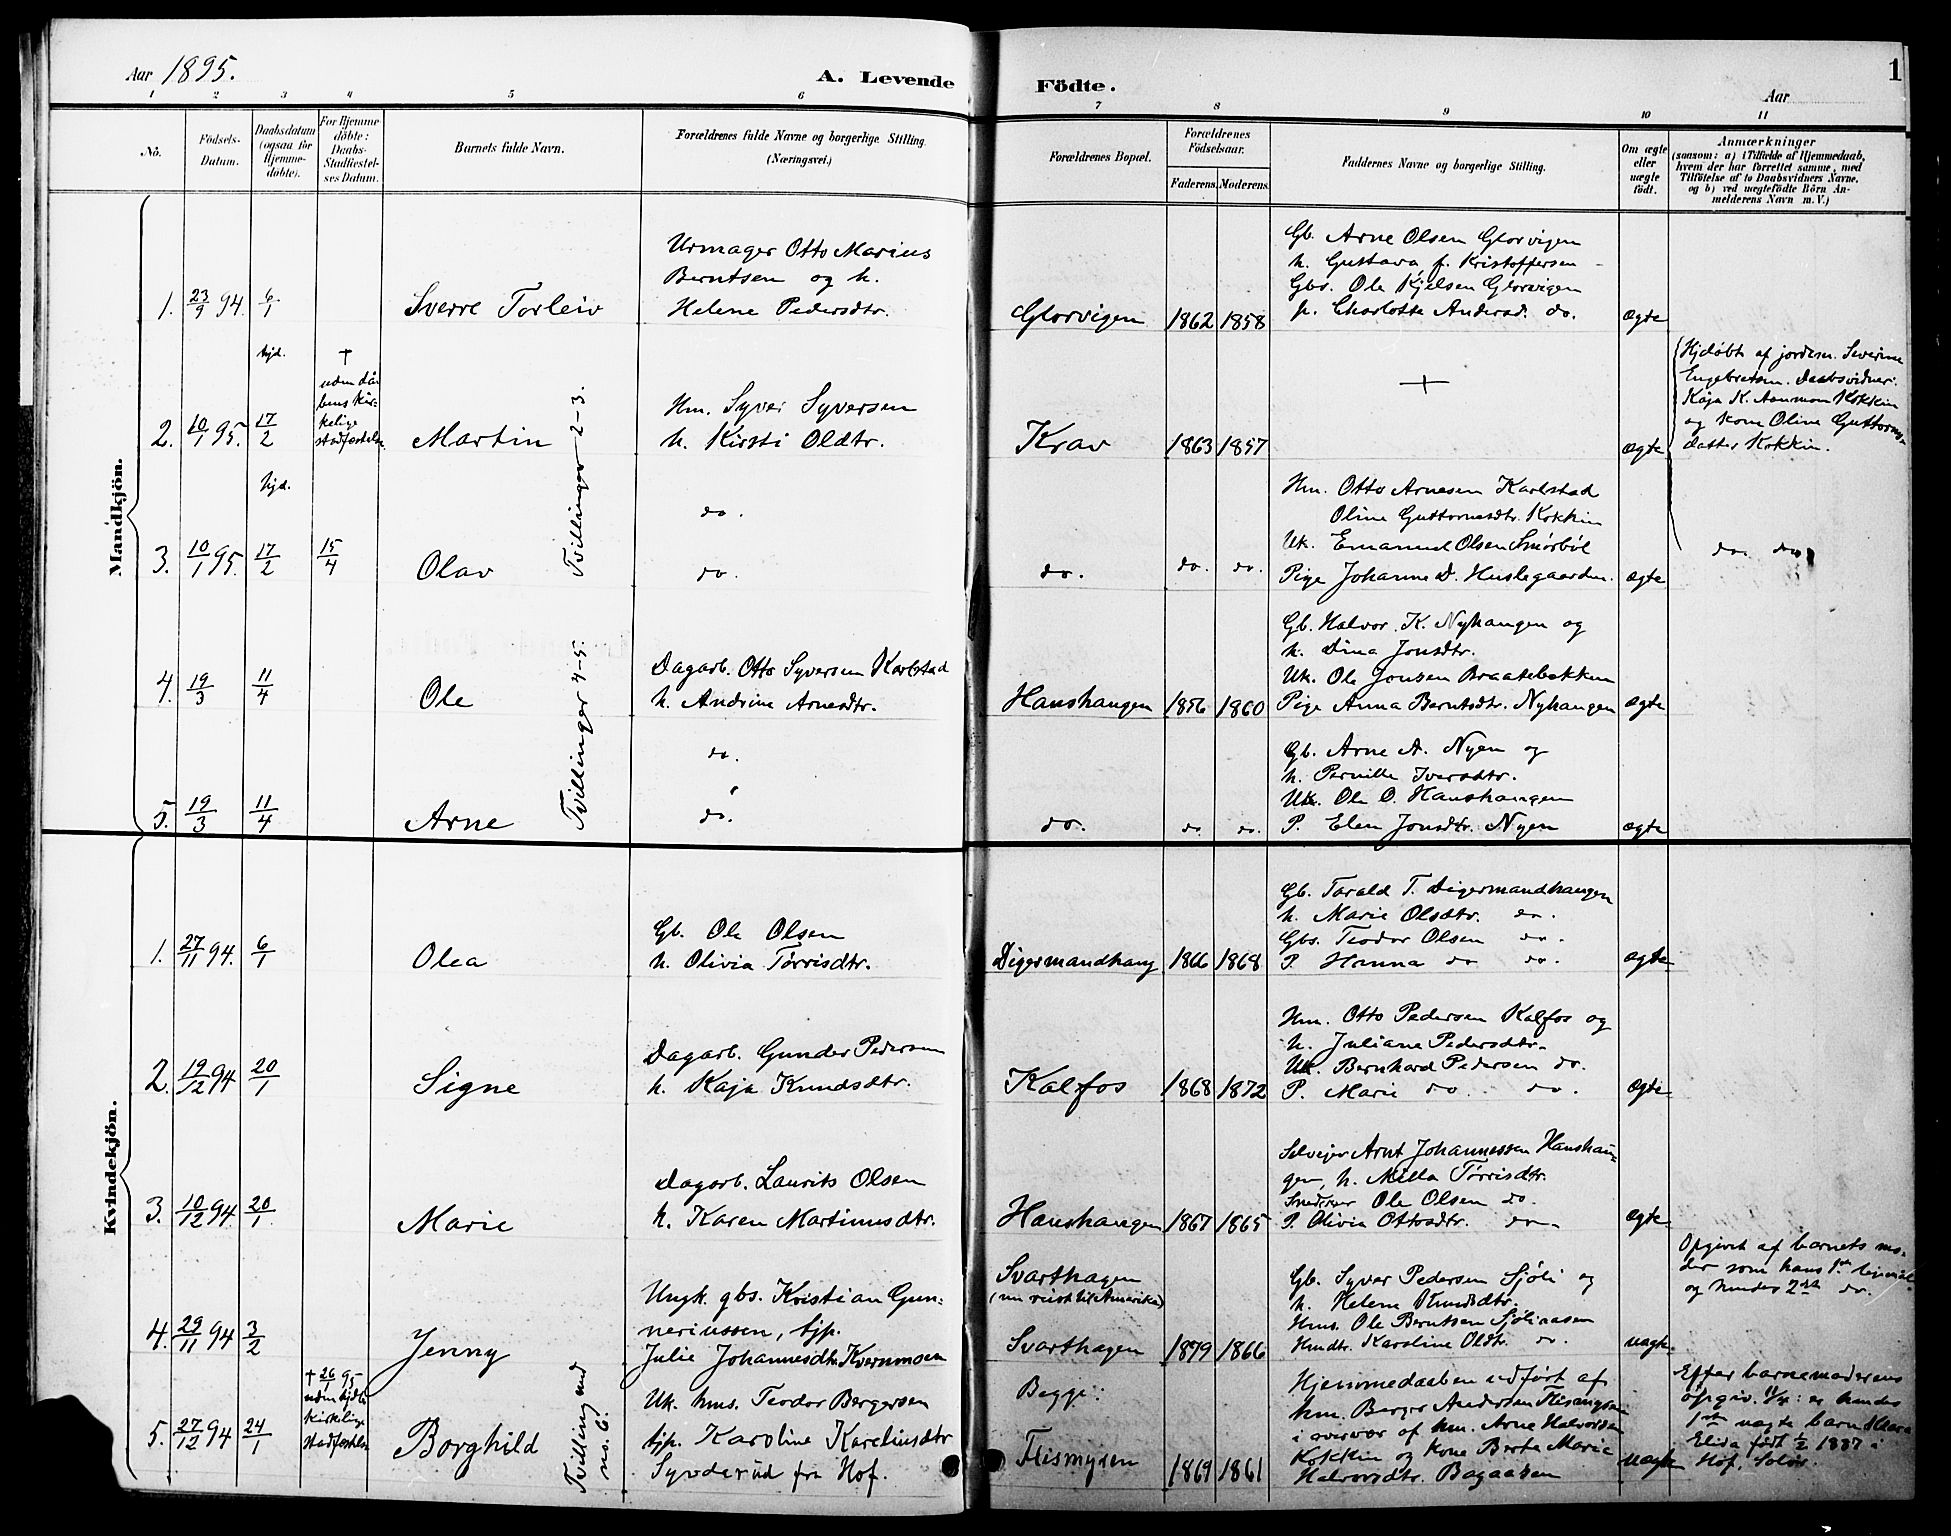 Aar 1895.
A. Levende
Födte.
Aar
1
1 2 3 4 5 6 7 8 9 10 11
No.
Födsels-
Datum.
Daabsdatum
(ogsaa for
Hjemme-
döbte).
For Hjemme
döbte:
Daabs-
Stadfæstel-
ses Datum.
Barnets fulde Navn.
Forældrenes fulde Navne og borgerlige Stilling
(Næringsvei.)
Forældrenes Bopæl.
Forældrenes
Födselsaar.
Faderens. Moderens.
Faddernes Navne og borgerlige Stilling.
Om ægte
eller
uægte
födt.
Anmærkninger
(saasom: a) i Tilfælde af Hjemmedaab,
hvem der har forrettet samme, med
Tilföielse af to Daabsvidners Navne.
og b) ved uægtefödte Börn An-
melderens Navn m. V.)
Mandkjön.
1. 23/9 94. 6/1
Sverre Torleiv
Urmager Otto Marius
Berntsen og h.
Helene Pedersdtr.
Glorvigen
1862 1858
Gb. Arne Olsen Glorvigen
h. Gustava f. Kristoffersen
Gbs. Ole Kjelsen Glorvigen
p. Charlotte Andersd. do.
ægte
2. 10/1 95. hjd. 17/2
†
uden då-
bens kir-
kelige
stadfæstelse
Martin
Tvillinger 2-3.
Hm. Syver Syversen
h. Kirsti Oldtr.
Krav
1863 1857
+
ægte
Hjdøbt af jordem. Severine
Engebretsen. Daabsvidner:
Kaja K. Aamoen Kokkin
og kone Oline Guttorms-
datter Kokkin.
3. 10/1 95. hjd. 17/2 15/4
Olav
do.
do.
do.
do. do.
Hm. Otto Arnesen Karlstad
Oline Guttormsdtr. Kokkin
Uk. Emanuel Olsen Smörböl
Pige Johanne D. Huslegaarden.
ægte
do. do
4. 19/3 11/4
Ole
Tvillinger 4-5.
Dagarb. Otto Syversen Karlstad
h. Andrine Arnesdtr.
Haushaugen
1856 1860
Gb. Halvor K. Nyhaugen og
h. Dina Jonsdtr.
Uk. Ole Jonsen Braatebekken
Pige Anna Berntsdtr. Nyhaugen
ægte
5. 19/3 11/4
Arne
do.
do.
do.
do. do.
Gb. Arne A. Nyen og
h. Pernille Iversdtr.
Uk. Ole O. Haushaugen
P. Elen Jonsdtr. Nyen
ægte
Kvindekjön.
1. 27/11 94. 6/1
Olea
Gb. Ole Olsen
h. Olivia Tørrisdtr.
Digermandhaug
1866 1868
Gb. Tarald T. Digermandhaugen
h. Marie Olsdtr. do.
Gbs. Teodor Olsen do.
P. Hanna do do.
ægte
2. 19/12 94 20/1
Signe
Dagarb. Gunder Pedersen
h. Kaja Knudsdtr.
Kalfos
1868 1872
Hm. Otto Pedersen Kalfos og
h. Juliane Pedersdtr.
Uk. Bernhard Pedersen do.
P. Marie do. do.
ægte
3. 10/12 94 20/1.
Marie
Dagarb. Laurits Olsen
h. Karen Martinusdtr.
Haushaugen
1867 1865
Selveier Arnt Johannessen Haushau-
gen, h. Milla Tørrisdtr.
Snedker Ole Olsen do.
P. Olivia Ottosdtr. do.
ægte
4. 29/11 94 3/2
Jenny
Ungk. gbs. Kristian Gun-
neriussen, tjp.
Julie Johannesdtr. Kvernmoen
Svarthagen
(nu reist til Amerika)
Svarthagen
1879 1866
Gb. Syver Pedersen Sjöli og
h. Helene Knudsdtr.
Hms. Ole Berntsen Sjöliaasen
Hmdtr. Karoline Oldtr. do.
uægte
Opgivet af barnets mo-
der som hans 1ste leiermål
og hendes 2det do.
5. 27/12 94 24/1
† 26/1 95
uden dåbens
kirkelige
stadfæstelse
Borghild
Tvilling med
no. 6.
Uk. hms. Teodor Bergersen
tjp. Karoline Kareliusdtr
Syverud fra Hof.
Begge:
Flismyren
1869 1861
Hjemmedaaben udført af
hm. Berger Andersen Flisangen
i overvær af hm. Arne Halvorsen
Kokkin og kone Berte Marie
Halvorsdtr. Bagaasen
uægte
Efter barnemoderens
opgiv. 11/4: er hendes
1ste uægte barn Klara
Elida født 1/2 1887 i
Hof, Solør.